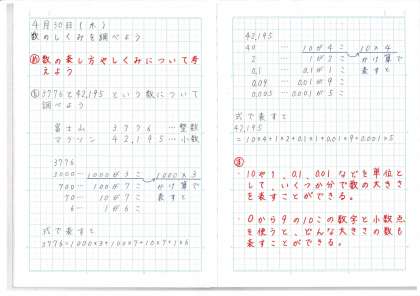 4月30日(木)
数のしくみを調べよう
め 数の表し方やしくみについて考
えよう
3776と42,195という数について
調べよう
富士山 3776…整数
マラソン 42,195…小数
3776
3000…1000が3こ 1000×3
700…100が7こ かけ算で
70…10が7こ 表すと
6…1が6こ
式で表すと
3776=1000×3+100×7+10×7+1×6
42,195
40…10が4こ 10×4
2…1が2こ かけ算で
0,1…0,1が1こ 表すと
0,09…0,01が9こ
0,005…0,001が5こ
式で表すと
42,195
=10×4+1×2+0,1×1+0,01×9+0,001×5
・10や1、0.1、0.01などを単位と
して、いくつか分で数の大きさ
を表すことができる。
・0から9の10この数字と小数点
を使うと、どんな大きさの数も
表すことができる。